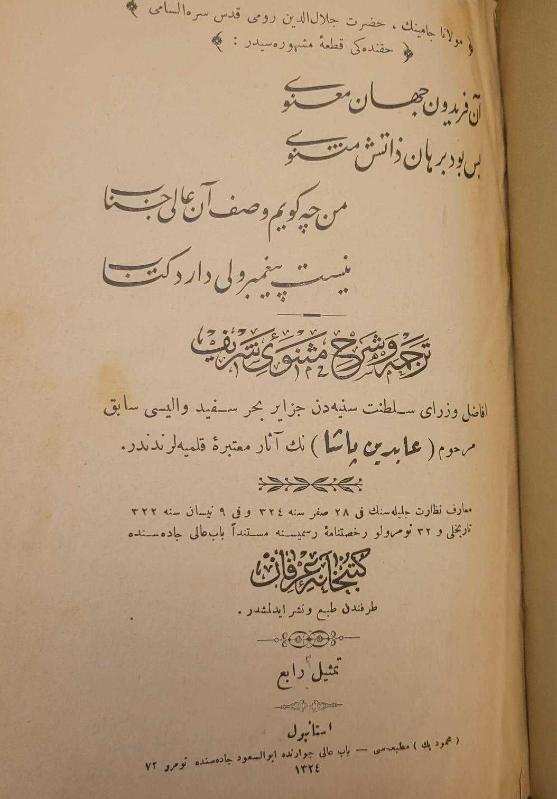 ﴿ مولانا جامينك ، حضرت جلال‌الدين رومى قدس سره‌السامى ﴾
﴿ حقنده‌كى قطعهٔ مشهوره‌سيدر : ﴾
آن فريدون جهان معنوى
بس بود برهان ذاتش مثنوى
من چه كويم وصف آن عالى جناب
نيست پيغمبر ولى دارد كتاب
ترجمه و شرح مثنوىٔ شريف
افاضل وزراى سلطنت سنيه‌دن جزاير بحر سفيد واليسى سابق
مرحوم ( عابدين پاشا ) نك آثار معتبرهٔ قلميه‌لرندندر.
معارف نظارت جليله‌سنك فى ٢٨ صفر سنه ٣٢٤ و فى ٩ نيسان سنه ٣٢٢
تاريخلى و ٣٢ نومرولو رخصتنامهٔ رسميسنه مستنداً باب‌عالى جاده‌سنده
كتبخانهٔ عرفان
طرفندن طبع و نشر ايدلمشدر .
تمثيل رابع
استانبول
( محمود بك ) مطبعه‌سى — باب عالى جوارنده ابوالسعود جاده‌سنده نومرو ٧٢
١٣٢٤